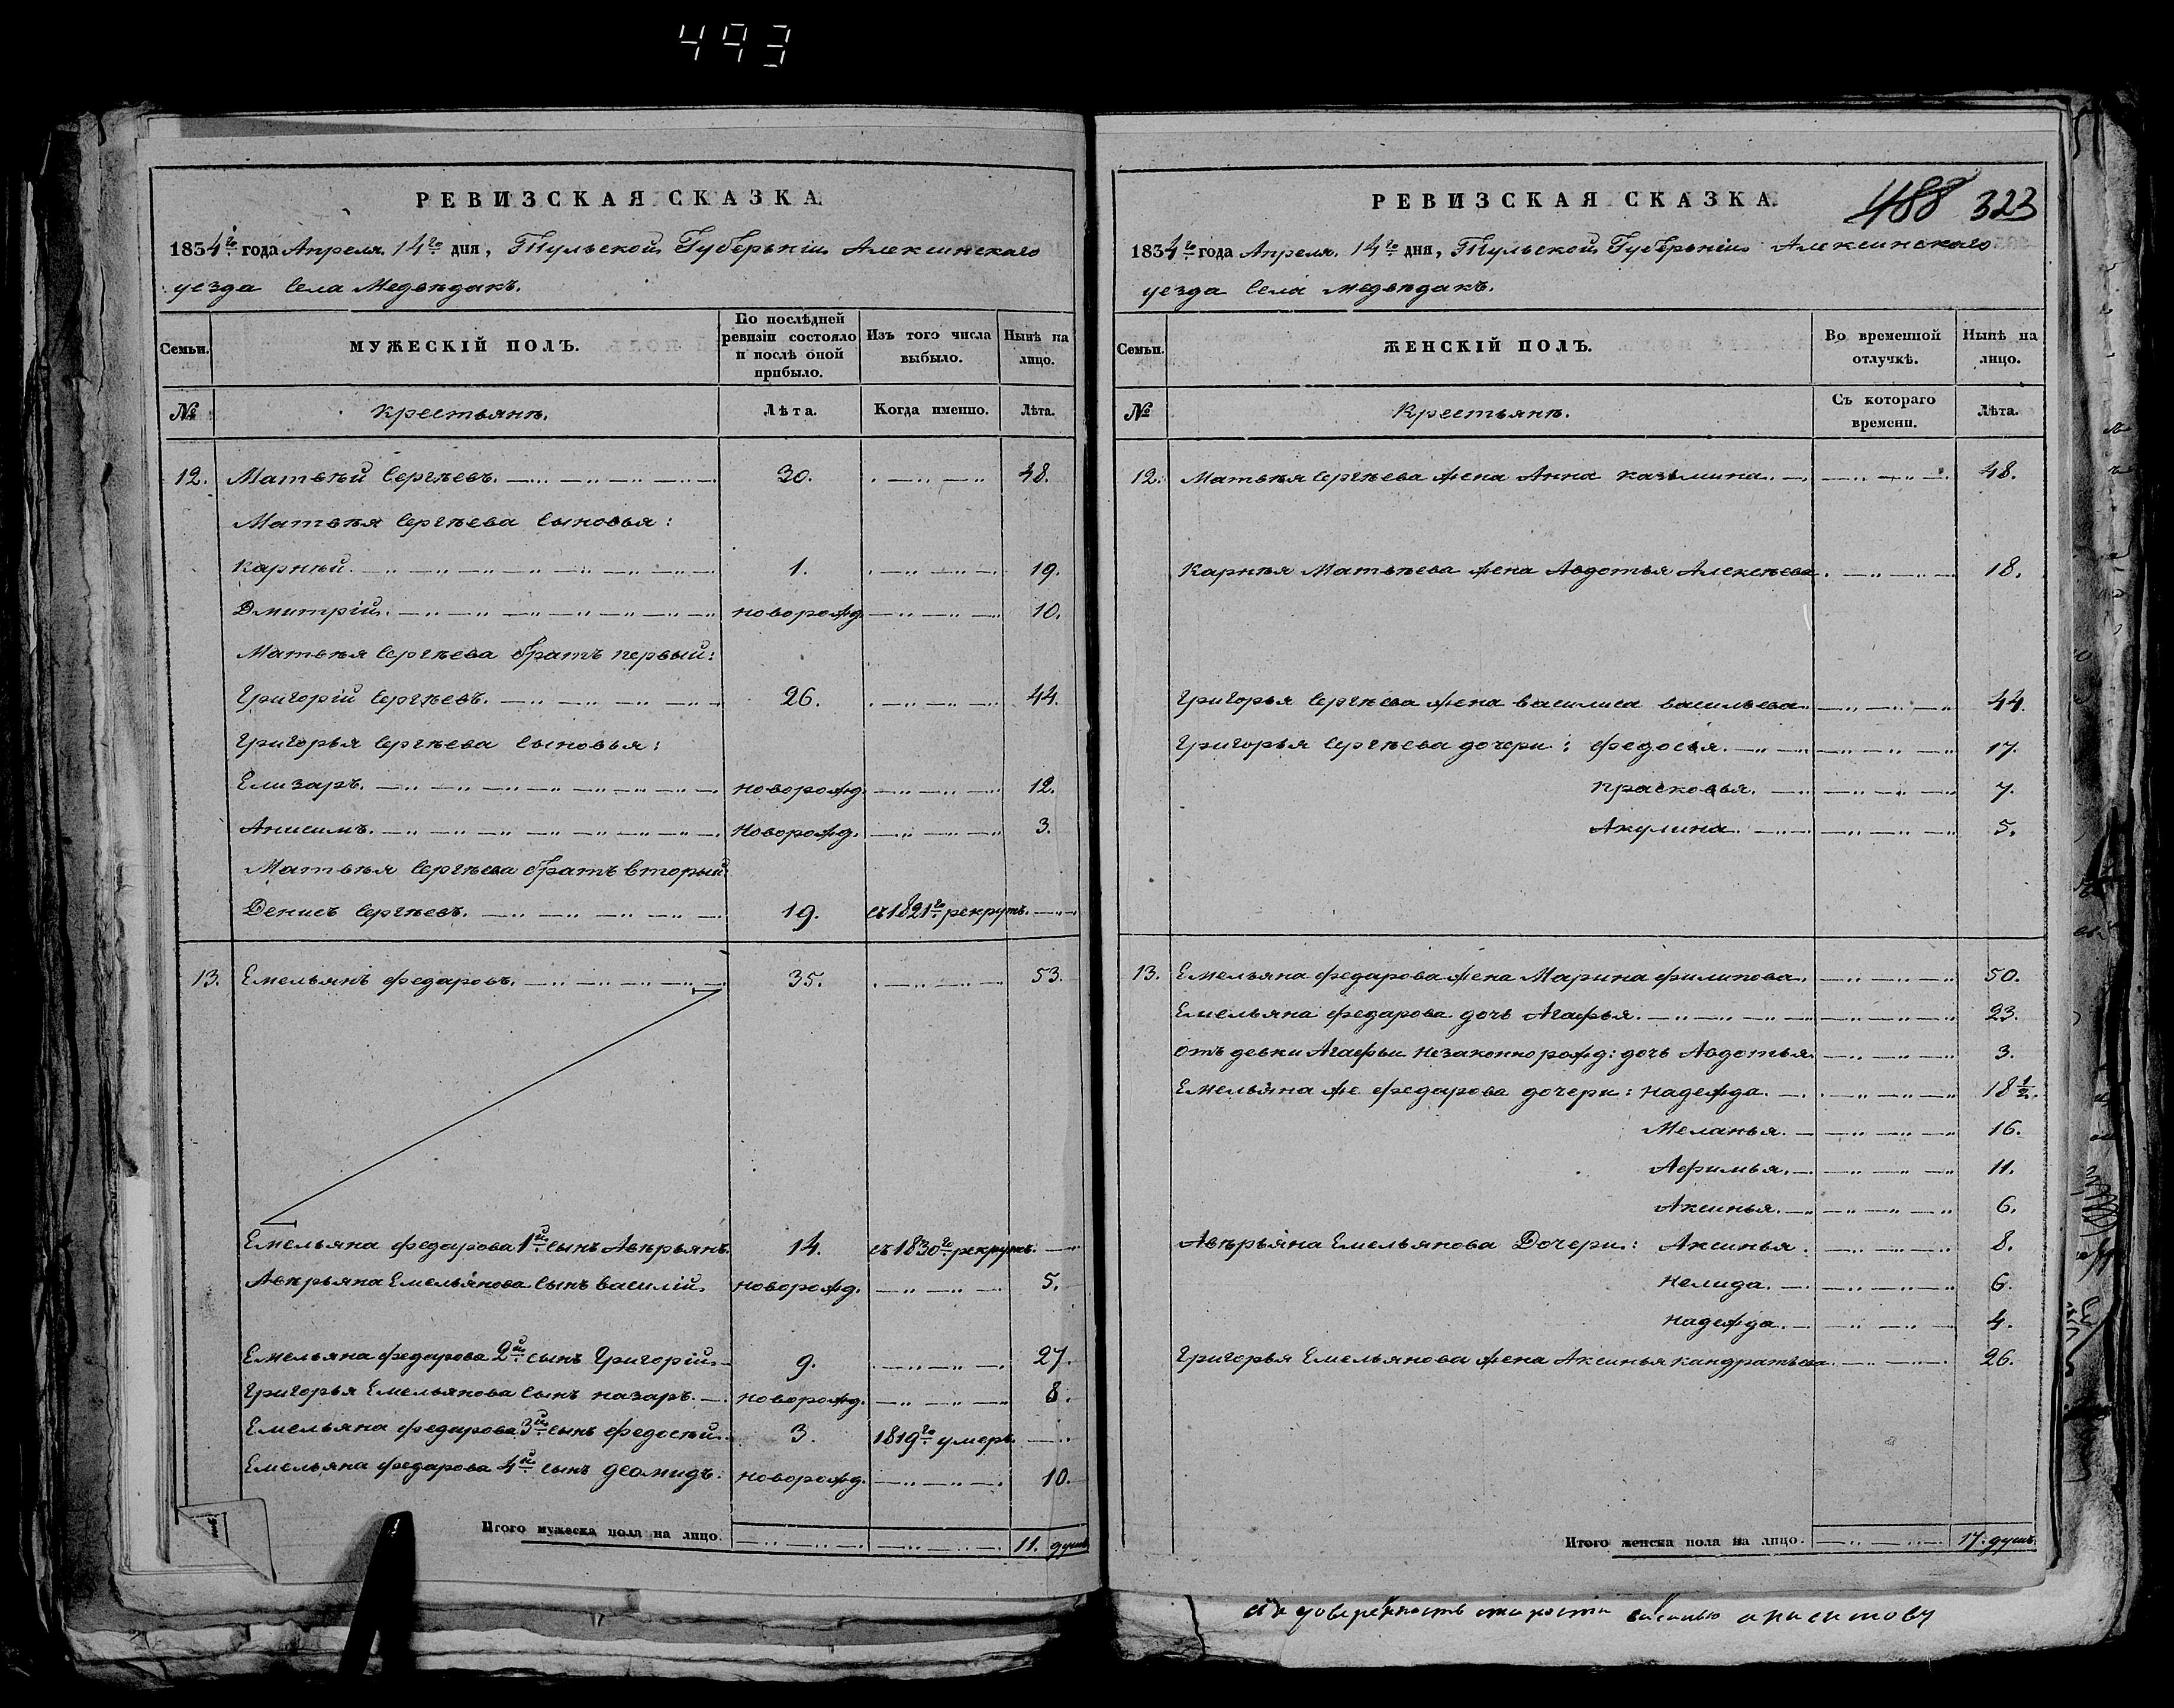 493
РЕВИЗСКАЯ СКАЗКА.
1834го года Апреля 14го дня, Тульской Губерьніи Алексинскаго
уезда Села Медведакъ.
Семьи.
МУЖЕСКІЙ ПОЛЪ.
По последней ревизіи состояло и после оной прибыло.
Изъ того числа выбыло.
Ныне на лицо.
№
Крестьяне.
Лета.
Когда именно.
Лета.
12. Матвѣй Сергѣевъ. 30. 48.
Матвѣя Сергѣева Сыновья:
Карнѣй. 1. 19.
Дмитрій. новорожд. 10.
Матвѣя Сергѣева братъ первый:
Григорій Сергѣевъ. 26. 44.
Григорья Сергѣева Сыновья:
Елизаръ. новорожд. 12.
Анисимъ. новорожд. 3.
Матвѣя Сергѣева братъ вторый:
Денисъ Сергѣевъ. 19. съ 1821го рекрутъ.
13. Емельянъ Федаровъ. 35. 53.
Емельяна Федарова 1й сынъ Авѣрьянъ. 14. съ 1830го рекрутъ.
Авѣрьяна Емельянова Сынъ Василій. новорожд. 5.
Емельяна Федарова 2й сынъ Григорій. 9. 27.
Григорья Емельянова Сынъ Назаръ. новорожд. 8.
Емельяна Федарова 3й сынъ Федосѣй. 3. 1819го умеръ.
Емельяна Федарова 4й сынъ Деомидъ. новорожд. 10.
Итого мужеска пола на лицо. 11. душъ
РЕВИЗСКАЯ СКАЗКА.
488 323
1834го года Апреля 14го дня, Тульской Губерьніи Алексинскаго
уезда Села Медведакъ.
Семьи.
ЖЕНСКІЙ ПОЛЪ.
Во временной отлучкѣ.
Нынѣ на лицо.
№
Крестьяне.
Съ котораго времени.
Лѣта.
12. Матвѣя Сергѣева жена Анна Казьмина. 48.
Карнѣя Матвѣева жена Авдотья Алексѣева. 18.
Григорья Сергѣева жена Василиса Васильева. 44.
Григорья Сергѣева дочери: Федосья. 17.
Прасковья. 7.
Акулина. 5.
13. Емельяна Федарова жена Марина Филипова. 50.
Емельяна Федарова дочь Агафья. 23.
Отъ девки Агафьи незаконнорожд: дочь Авдотья. 3.
Емельяна же Федарова дочери: Надежда. 18 1/2.
Меланья. 16.
Афимья. 11.
Аксинья. 6.
Авѣрьяна Емельянова Дочери: Аксинья. 8.
Нелида. 6.
Надежда. 4.
Григорья Емельянова жена Аксинья Кандратьева. 26.
Итого женска пола на лицо. 17. душъ.